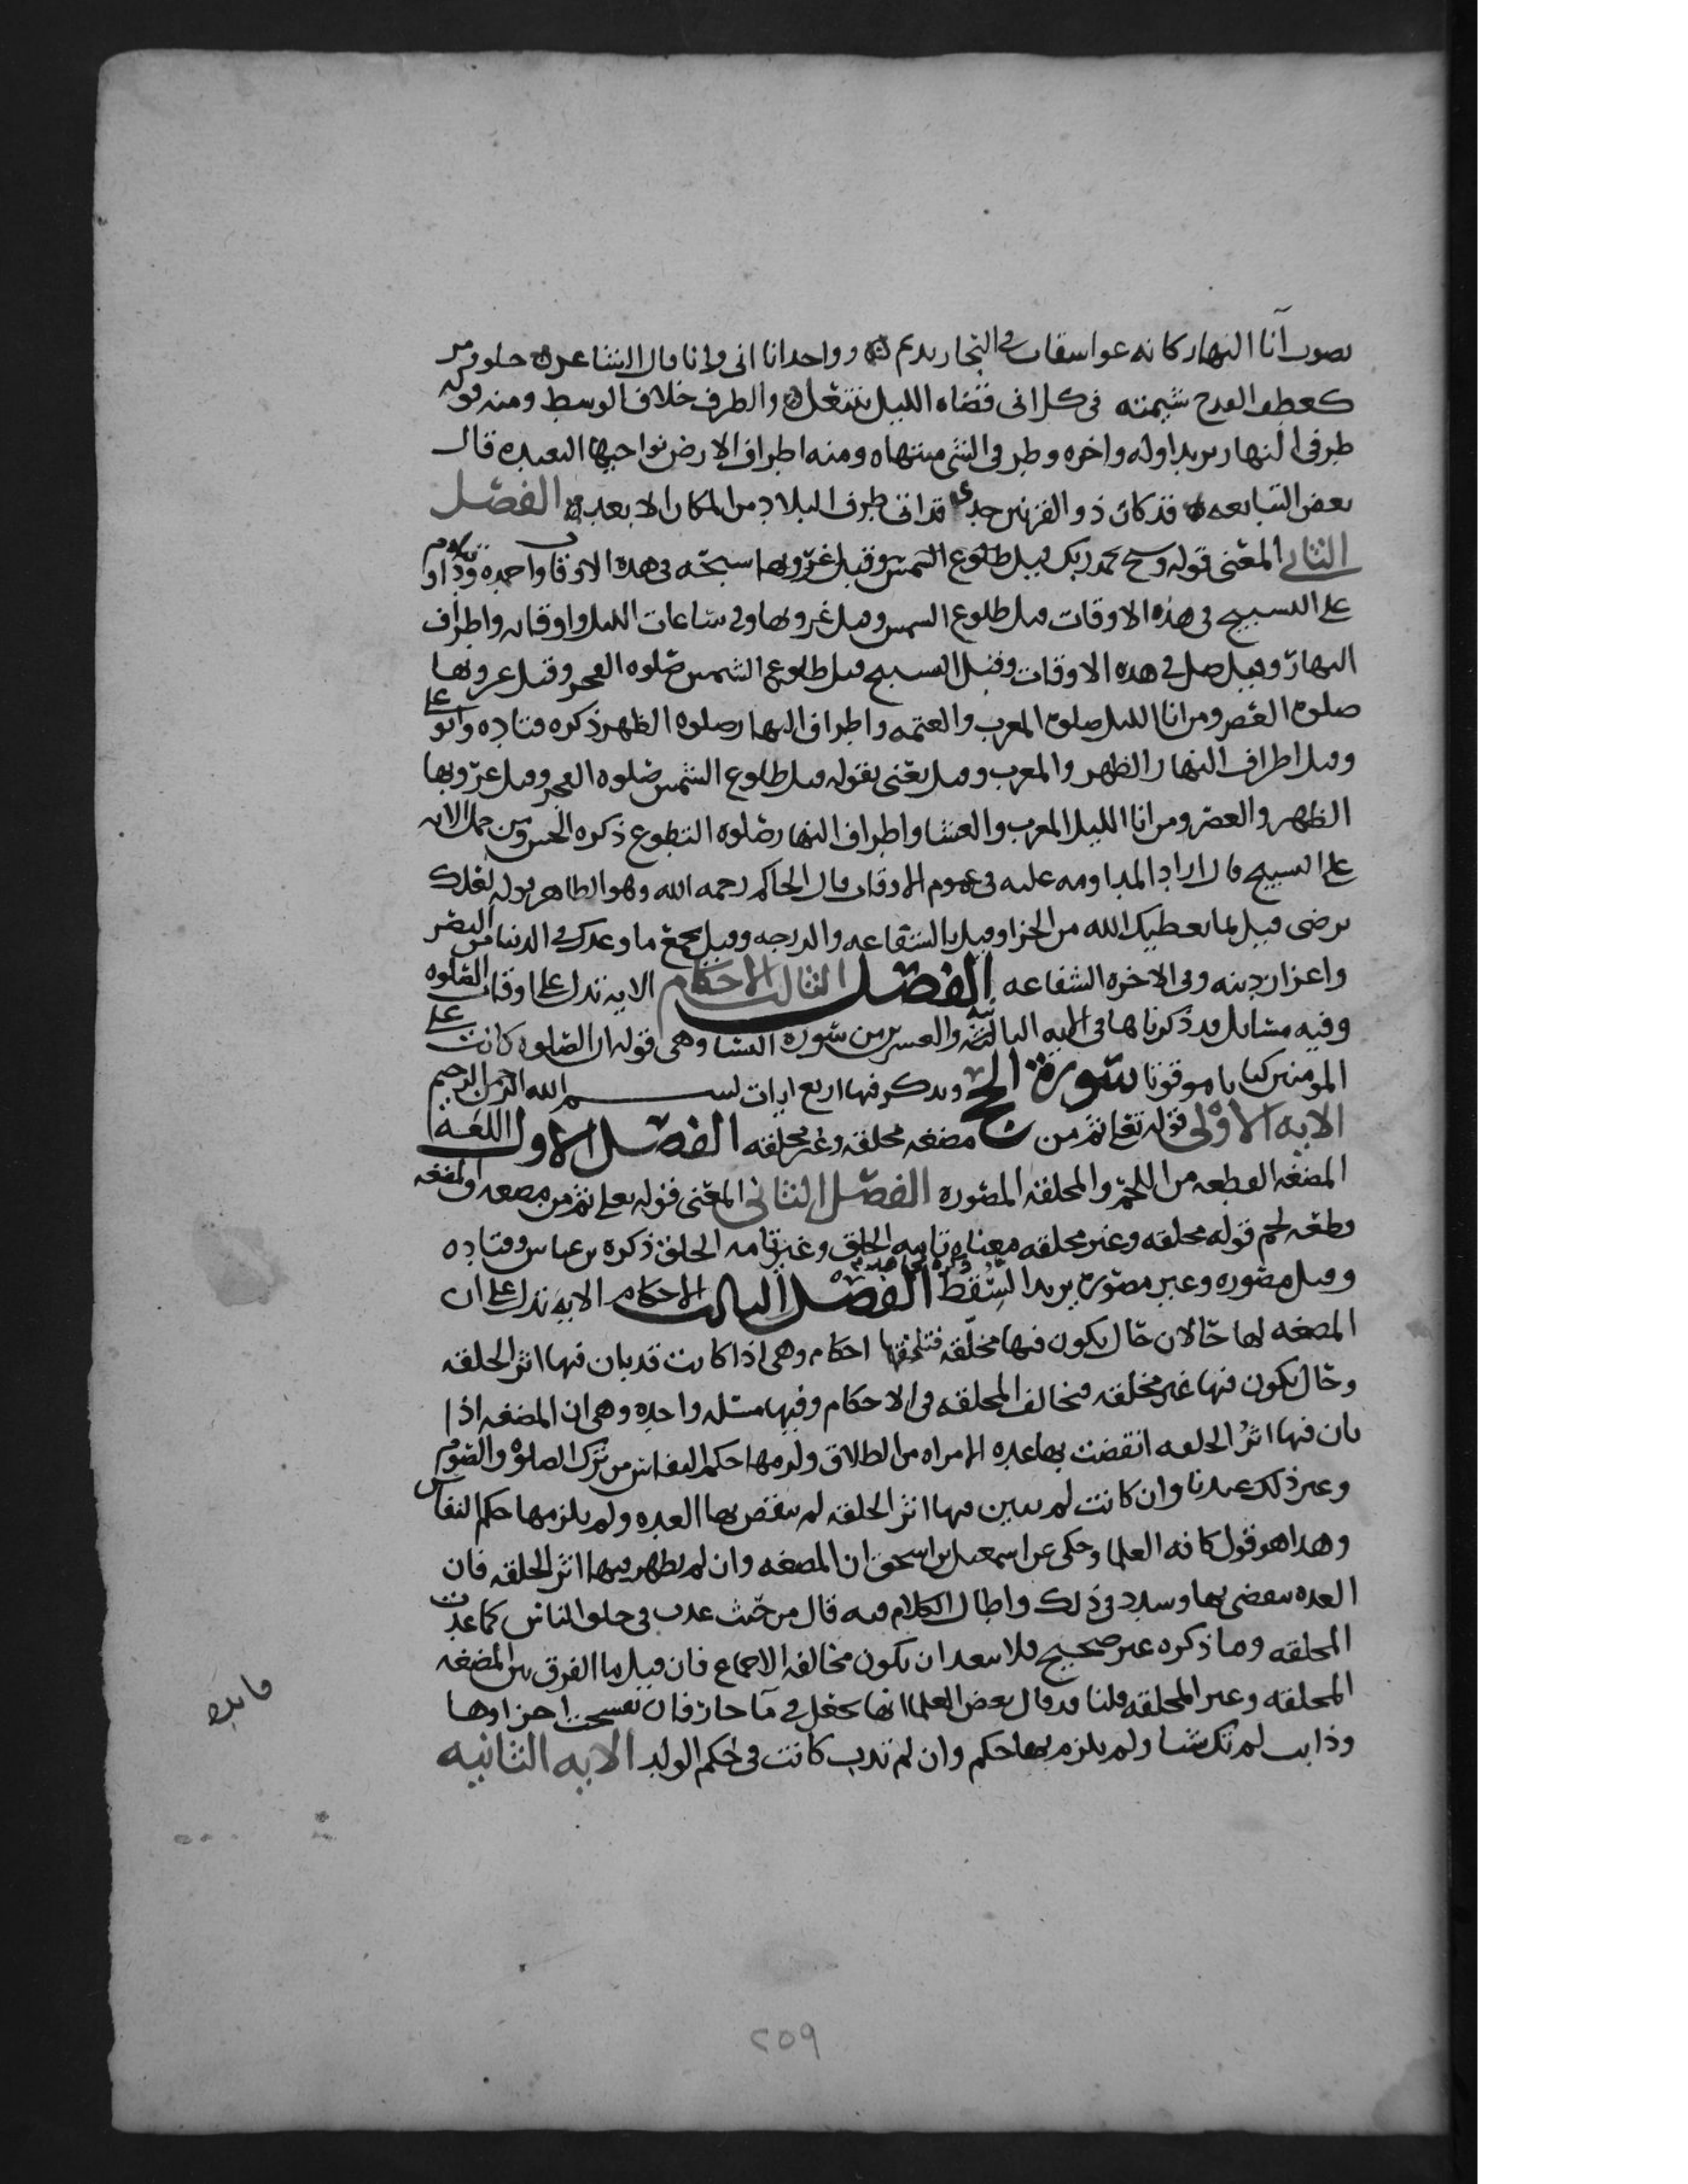 يصوب آنا النهار كانه عوا سقاب في التجار نديم وواحد انا انى وانا قال الشاعر حلو ومر
كعطف القدح شيمته في كل انى قضاه الليل ينتعل والطرف خلاف الوسط ومنه قوله
طرفي النهار يريد اوله واخره وطرف الشي منتهاه ومنه اطراف الارض نواحيها البعيده قال
بعض التبابعه قد كان ذو القرنين جدي قد اتى طرف البلاد من المكان الابعد الفصل
الثاني المعنى قوله وسبح بحمد ربك قبل طلوع الشمس وقبل غروبها سبحه في هذه الاوقات واحمده وداوم
على التسبيح في هذه الاوقات قبل طلوع الشمس وقبل غروبها وفي ساعات الليل واوقاته واطراف
النهار وقيل صل في هذه الاوقات وقيل التسبيح قبل طلوع الشمس صلوه الفجر وقبل غروبها
صلوة العصر ومن انا الليل صلوة المغرب والعتمه واطراف النهار صلوه الظهر ذكره قتاده وابو على
وقيل اطراف النهار الظهر والمغرب وقيل يعني بقوله قبل طلوع الشمس صلوه الفجر وقبل غروبها
الظهر والعصر ومن انا الليل المغرب والعشا واطراف النهار صلوه التطوع ذكره الحسن ومن حمل الايه
على التسبيح قال اراد المداومه عليه في عموم الاوقات قال الحاكم رحمه الله وهو الظاهر قوله لعلك
ترضى قيل بما يعطيك الله من الجزا وقيل بالشفاعه والدرجه وقيل بجميع ما وعدك في الدنيا من النصر
واعزاز دينه وفي الاخره الشفاعه الفصل الثالث الاحكام الايه تدل على اوقات الصلوه
وفيه مسايل قد ذكرناها في الايه الثالثه والعشرين من سورة النسا وهي قوله ان الصلوه كانت على
المومنين كتابا موقوتا سورة الحج ويذكر فيها اربع ايات بسم الله الرحمن الرحيم
الايه الاولى قوله تعالى ثم من مضغه مخلقه وغير مخلقه الفصل الاول اللغة
المضغه القطعه من اللحم والمخلقه المصوره الفصل الثاني المعنى قوله تعلى ثم من مضغه والمضغه
قطعه لحم قوله مخلقه وغير مخلقه معناه تامه الخلق وغير تامه الخلق ذكره بن عباس وقتاده
وقيل مصوره وغير مصوره يريد السقط ذكره مجاهد الفصل الثالث الاحكام الايه تدل على ان
المضغه لها حالان حال يكون فيها مخلقه فتلحقها احكام وهي اذا كانت قد بان فيها اثر الخلقه
وحال يكون فيها غير مخلقه فتخالف المخلقه في الاحكام وفيها مسئله واحده وهي ان المضغه اذا
بان فيها اثر الخلقه انقضت بها عده الامراه من الطلاق ولزمها حكم النفاس من ترك الصلوة والصوم
وغير ذلك عندنا وان كانت لم يتبين فيها اثر الخلقه لم تنقض بها العده ولم يلزمها حكم النفاس
وهذا هو قول كافه العلما وحكى عن اسمعيل بن اسحق ان المضغه وان لم يظهر فيها اثر الخلقه فان
العده تنقضي بها وشدد في ذلك واطال الكلام فيه قال من حيث عدت في خلق الناس كما عدت
المخلقه وما ذكره غير صحيح فلا يبعد ان تكون مخالفه الاجماع فان قيل ما الفرق بين المضغه
المخلقه وغير المخلقه قلنا قد قال بعض العلما انها تجعل في ما حار فان تفسحت اجزاوها
وذابت لم تك شيا ولم يلزم بها حكم وان لم تذب كانت في حكم الولد الايه الثانيه
فايده
٢٥٩